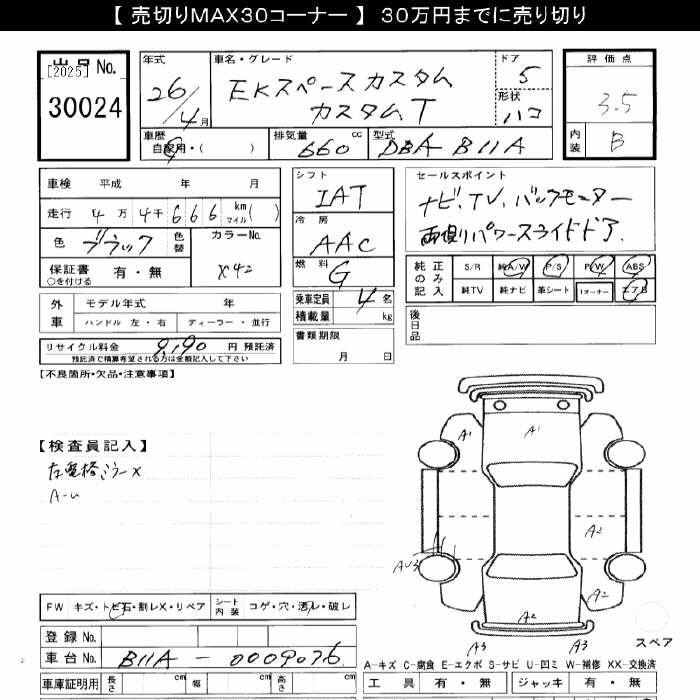 【 売切りMAX30コーナー 】 30万円までに売り切り
出品 No.
[2025]
30024
年式
26/4月
車名・グレード
EKスペースカスタム
カスタムT
ドア
5
形状
ハコ
評価点
3.5
内装
B
車歴
自家用・( )
排気量
660 cc
型式
DBA B11A
車検 平成 年 月
走行 4万 4千 666 km マイル ( )
色 ブラック
色替
カラーNo.
X42
保証書 有・無
○を付ける
シフト
IAT
冷房
AAC
燃料
G
乗車定員 4 名
積載量 kg
セールスポイント
ナビ、TV、バックモニター
両側パワースライドドア
純正のみ記入
S/R 純A/W P/S P/W ABS
純TV 純ナビ 革シート 1オーナー エアB
外車
モデル年式 年
ハンドル 左・右 ディーラー・並行
リサイクル料金 9,190 円 預託済
預託済で積算希望される方は金額記入して下さい
書類期限
月 日
後日品
【不良箇所・欠品・注意事項】
【検査員記入】
左電格ミラーX
A-U
A1
A1
A2
AU3
A2
A2
A3
A3
スペア
FW キズ・トビ石・割レX・リペア
シート内装 コゲ・穴・汚レ・破レ
登録 No.
車台 No. B11A - 0009076
A-キズ C-腐食 E-エクボ S-サビ U-凹ミ W-補修 XX-交換済
車庫証明用 長さ cm 幅 cm 高さ cm
工具 有・無 ジャッキ 有・無